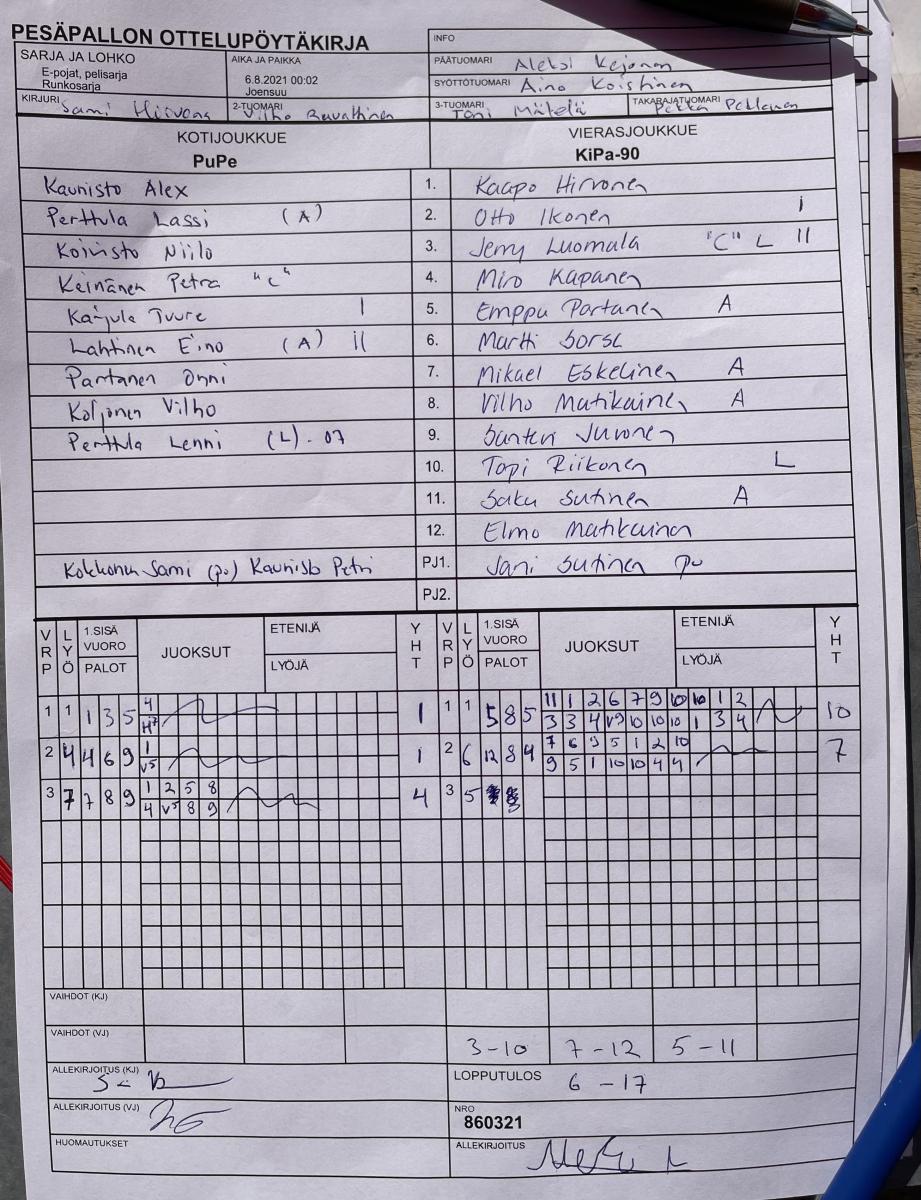 PESÄPALLON OTTELUPÖYTÄKIRJA
INFO
SARJA JA LOHKO
E-pojat, pelisarja
Runkosarja
AIKA JA PAIKKA
6.8.2021 00:02
Joensuu
PÄÄTUOMARI Aleksi Kejonen
SYÖTTÖTUOMARI Aino Koistinen
KIRJURI Sami
2-TUOMARI Vilho
3-TUOMARI Toni Mätelä
TAKARAJATUOMARI Pekka
KOTIJOUKKUE
PuPe
VIERASJOUKKUE
KiPa-90
Kaunisto Alex 1. Kaapo Hirvonen
Perttula Lassi (A) 2. Otto Ikonen I
Koivisto Niilo 3. Jerry Luomala "C" L II
Keinänen Petra "C" 4. Miro Kapanen
Karjula Tuure I 5. Emppu Partanen A
Lahtinen Eino (A) II 6. Martti
Partanen Onni 7. Mikael Eskelinen A
Koljonen Vilho 8. Vilho Matikainen A
Perttula Lenni (L) - 07 9. Santeri Juvonen
10. Topi Riikonen L
11. Saku Sutinen A
12. Elmo Matikainen
Kokkonen Sami (pv) Kaunisto Petri PJ1. Jani Sutinen pv
PJ2.
VRP LYÖ 1.SISÄ VUORO PALOT JUOKSUT ETENIJÄ LYÖJÄ YHT VRP LYÖ 1.SISÄ VUORO PALOT JUOKSUT ETENIJÄ LYÖJÄ YHT
1 1 1 3 5 4 1 1 1 5 8 5 11 1 2 6 7 9 10 10 1 2 10
H7 3 3 4 V9 10 10 10 1 3 4
2 4 4 6 9 1 1 2 6 12 8 4 7 6 9 5 1 2 10 7
V5 9 5 1 10 10 4 4
3 7 7 8 9 1 2 5 8 4 3 5
4 V5 8 9
VAIHDOT (KJ)
VAIHDOT (VJ) 3-10 7-12 5-11
ALLEKIRJOITUS (KJ)
LOPPUTULOS 6 - 17
ALLEKIRJOITUS (VJ)
NRO
860321
HUOMAUTUKSET
ALLEKIRJOITUS